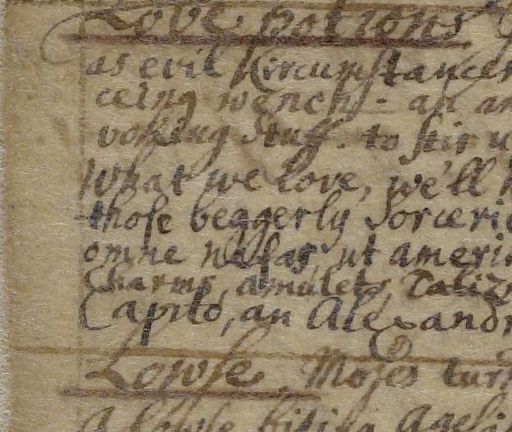 Love potions
as evil Circumstances
ceing wench - an am
voking stuff. to stir u
What we love, we'll h
those beggerly Sorceri
omne nefas ut amerin
Charms, amulets, Talizm
Capito, an Alexandr
Lowse. Moses turn
A lowse biting Agesi